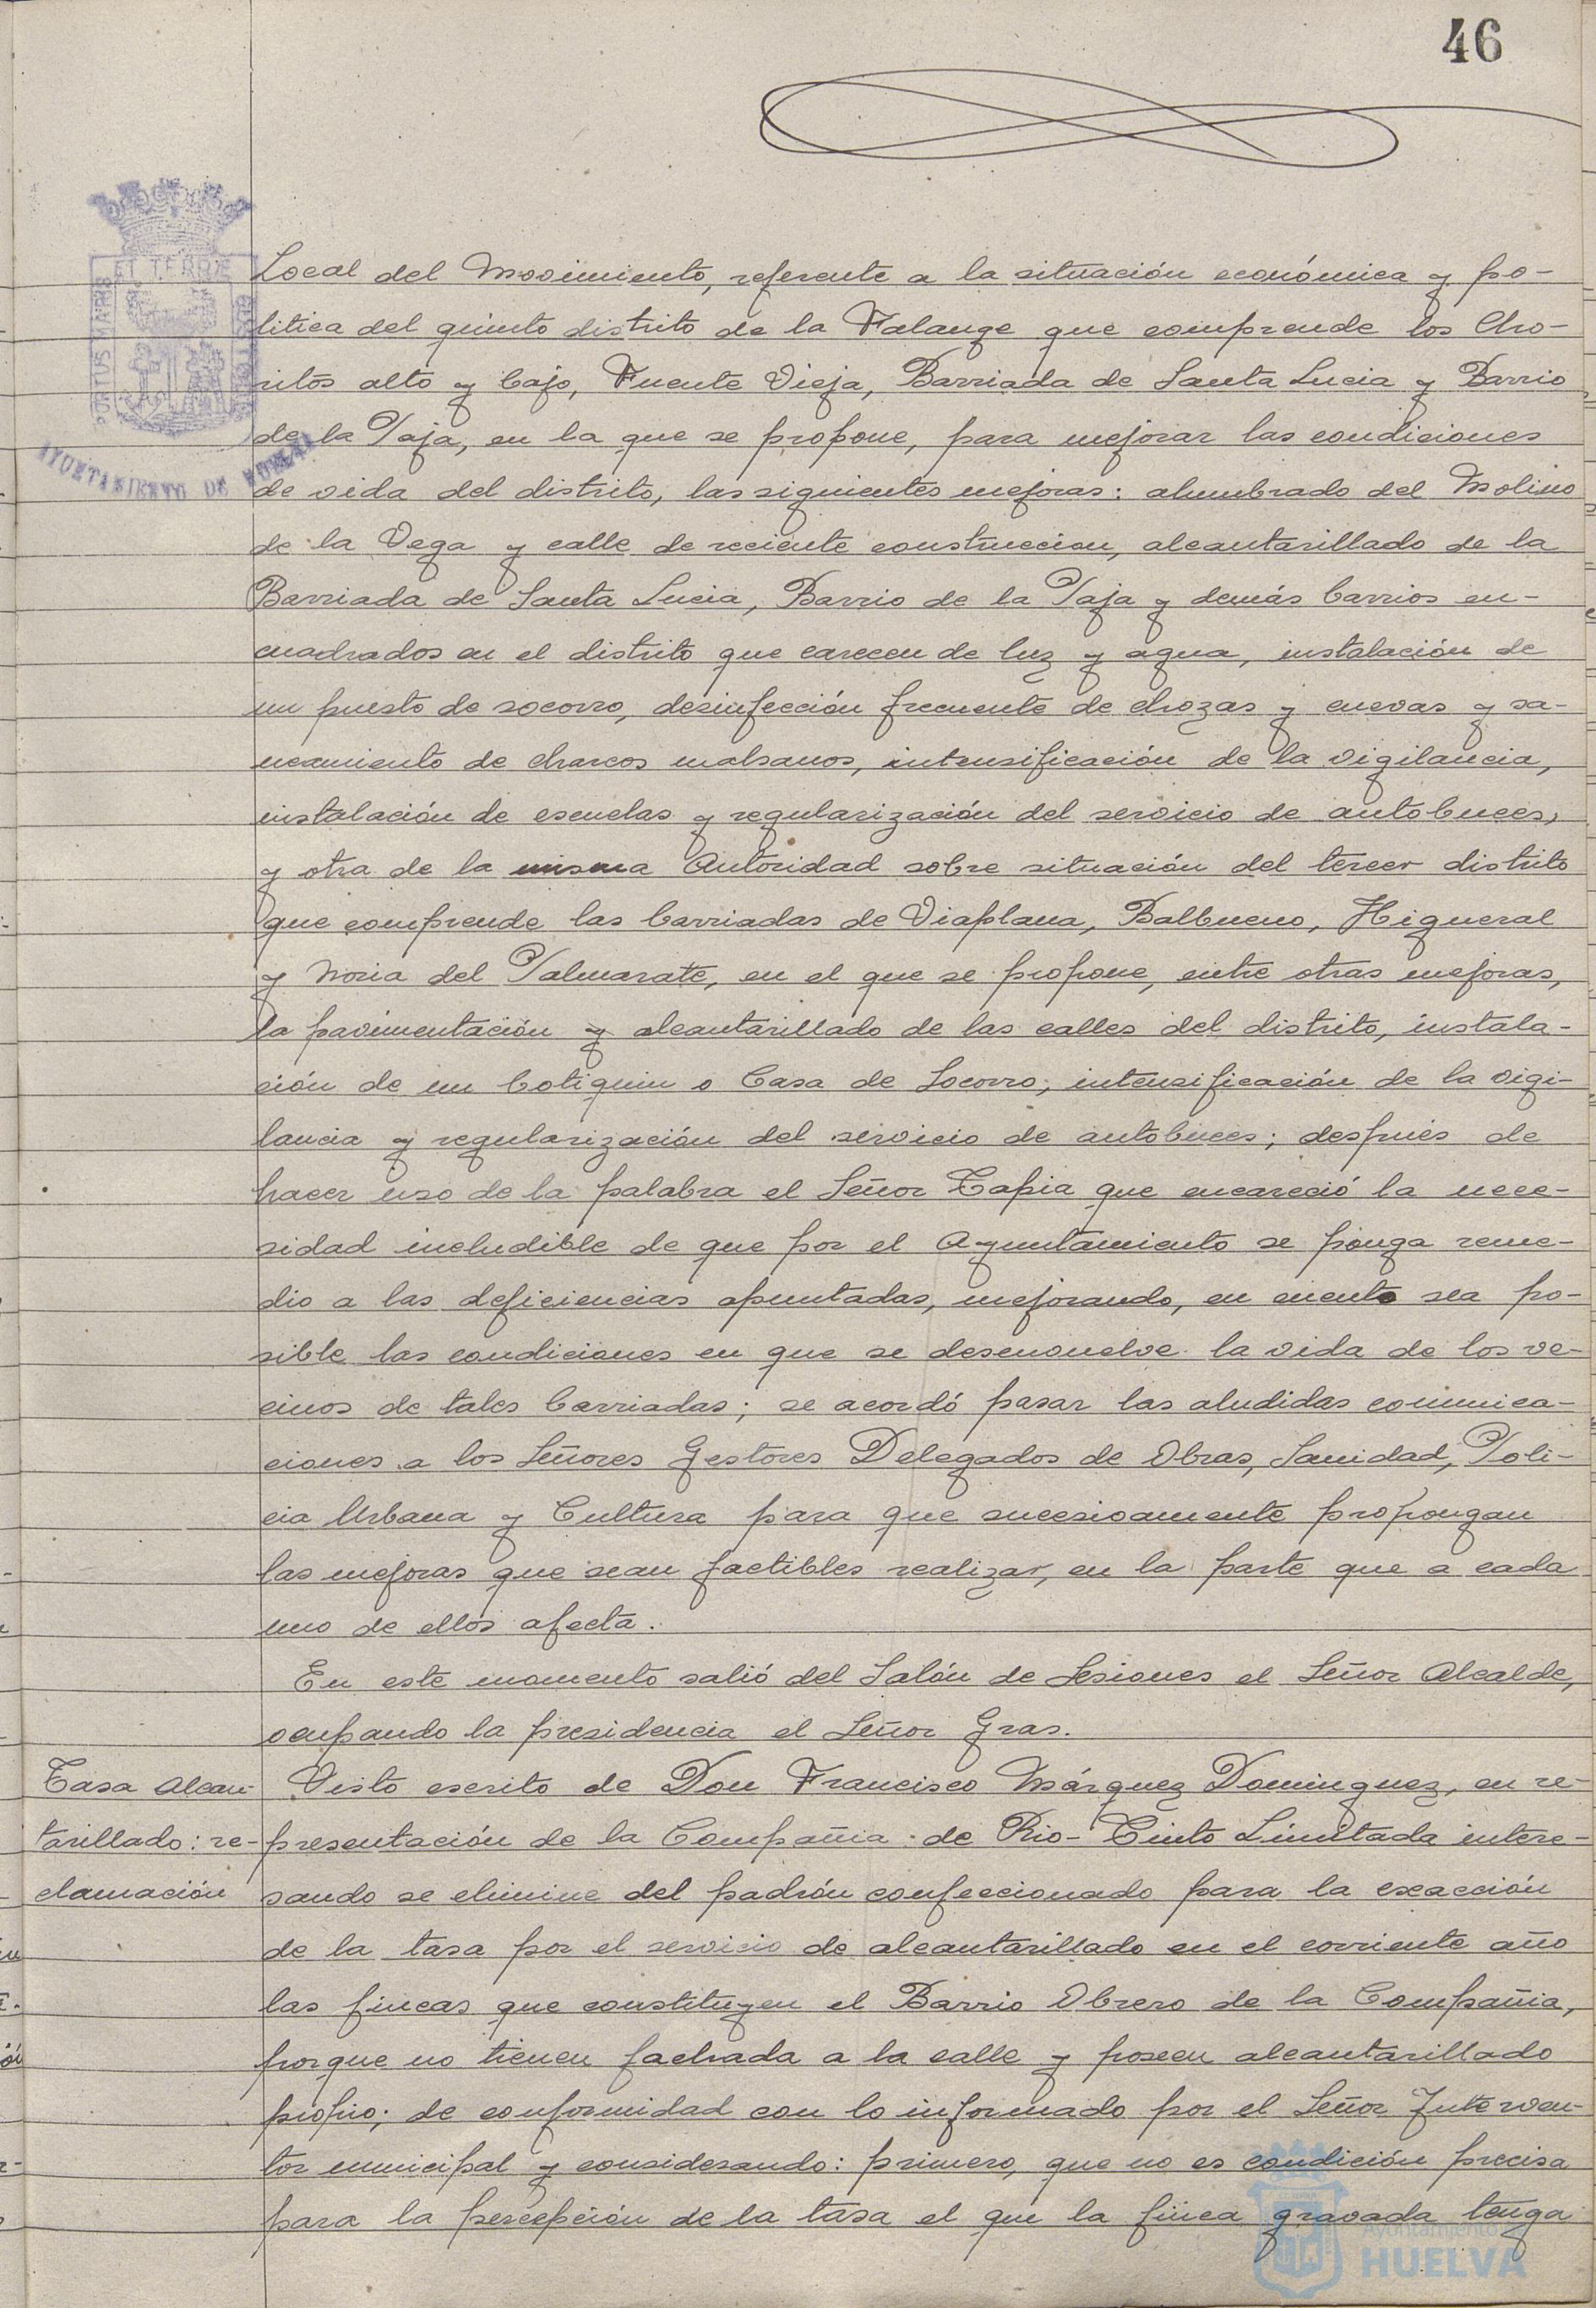 46
ET TERRÆ
PORTUS MARIS
CUSTODIA
AYUNTAMIENTO DE HUELVA
Local del Movimiento, referente a la situación económica y po-
litica del quinto distrito de la Falange que comprende los Cho-
ritos alto y bajo, Fuente Vieja, Barriada de Santa Lucia y Barrio
de la Paja, en la que se propone, para mejorar las condiciones
de vida del distrito, las siguientes mejoras: alumbrado del Molino
de la Vega y calle de reciente construccion, alcantarillado de la
Barriada de Santa Lucia, Barrio de la Paja y demás barrios en-
cuadrados en el distrito que carecen de luz y agua, instalación de
un puesto de socorro, desinfección frecuente de chozas y cuevas y sa-
neamiento de charcos malsanos, intensificación de la vigilancia,
instalación de escuelas y regularización del servicio de autobuces,
y otra de la misma Autoridad sobre situación del tercer distrito
que comprende las barriadas de Viaplana, Balbueno, Higueral
y Noria del Palmarate, en el que se propone, entre otras mejoras,
la pavimentación y alcantarillado de las calles del distrito, instala-
ción de un botiquin o Casa de Socorro, intensificación de la vigi-
lancia y regularización del servicio de autobuces; después de
hacer uso de la palabra el Señor Tapia que encareció la nece-
sidad ineludible de que por el Ayuntamiento se ponga reme-
dio a las deficiencias apuntadas, mejorando, en cuanto sea po-
sible las condiciones en que se desenvuelve la vida de los ve-
cinos de tales barriadas; se acordó pasar las aludidas comunica-
ciones a los Señores Gestores Delegados de Obras, Sanidad, Poli-
cia Urbana y Cultura para que sucesivamente propongan
las mejoras que sean factibles realizar, en la parte que a cada
uno de ellos afecta.
En este momento salió del Salón de Sesiones el Señor Alcalde,
ocupando la presidencia el Señor Gras.
Tasa alcan-
tarillado: re-
clamación
Visto escrito de Don Francisco Márquez Dominguez, en re-
presentación de la Compañia de Rio-Tinto Limitada intere-
sando se elimine del padrón confeccionado para la exacción
de la tasa por el servicio de alcantarillado en el corriente año
las fincas que constituyen el Barrio Obrero de la Compañia,
porque no tienen fachada a la calle y poseen alcantarillado
propio; de conformidad con lo informado por el Señor Interven-
tor municipal y considerando: primero, que no es condición precisa
para la percepción de la tasa el que la finca gravada tenga
Ayuntamiento de
HUELVA